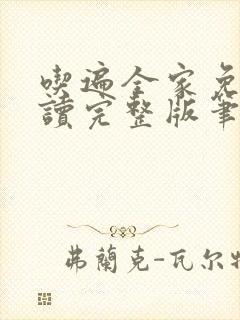 喫遍全家免
讀完整版筆
弗蘭克-瓦尔特